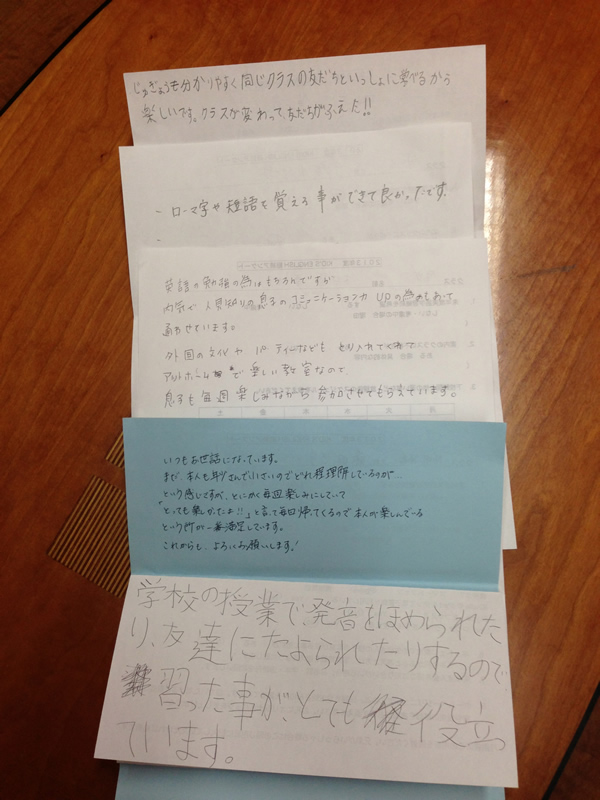 じゅぎょうも分かりやすく同じクラスの友だちといっしょに学べるから
楽しいです。クラスが変わって友だちがふえた!!
- ローマ字や短語を覚える事ができて良かったです。
-
英語の勉強の為はもちろんですが
内気で人見知りの息子のコミュニケーション力UPの為もあって
通わせています。
外国の文化やパーティーなどもとり入れてくれて
アットホームで楽しい教室なので
息子も毎週楽しみながら参加させてもらえています。
いつもお世話になっています。
まだ、本人も年少さんで小さいのでどれ程理解しているのか…
という感じですが、とにかく毎週楽しみにしていて
「とっても楽しかったよ!!」と言って毎日帰ってくるので本人が楽しんでいる
という所が一番満足しています。
これからも、よろしくお願いします!
学校の授業で、発音をほめられた
り、友達にたよられたりするので
習った事が、とても役立っ
ています。